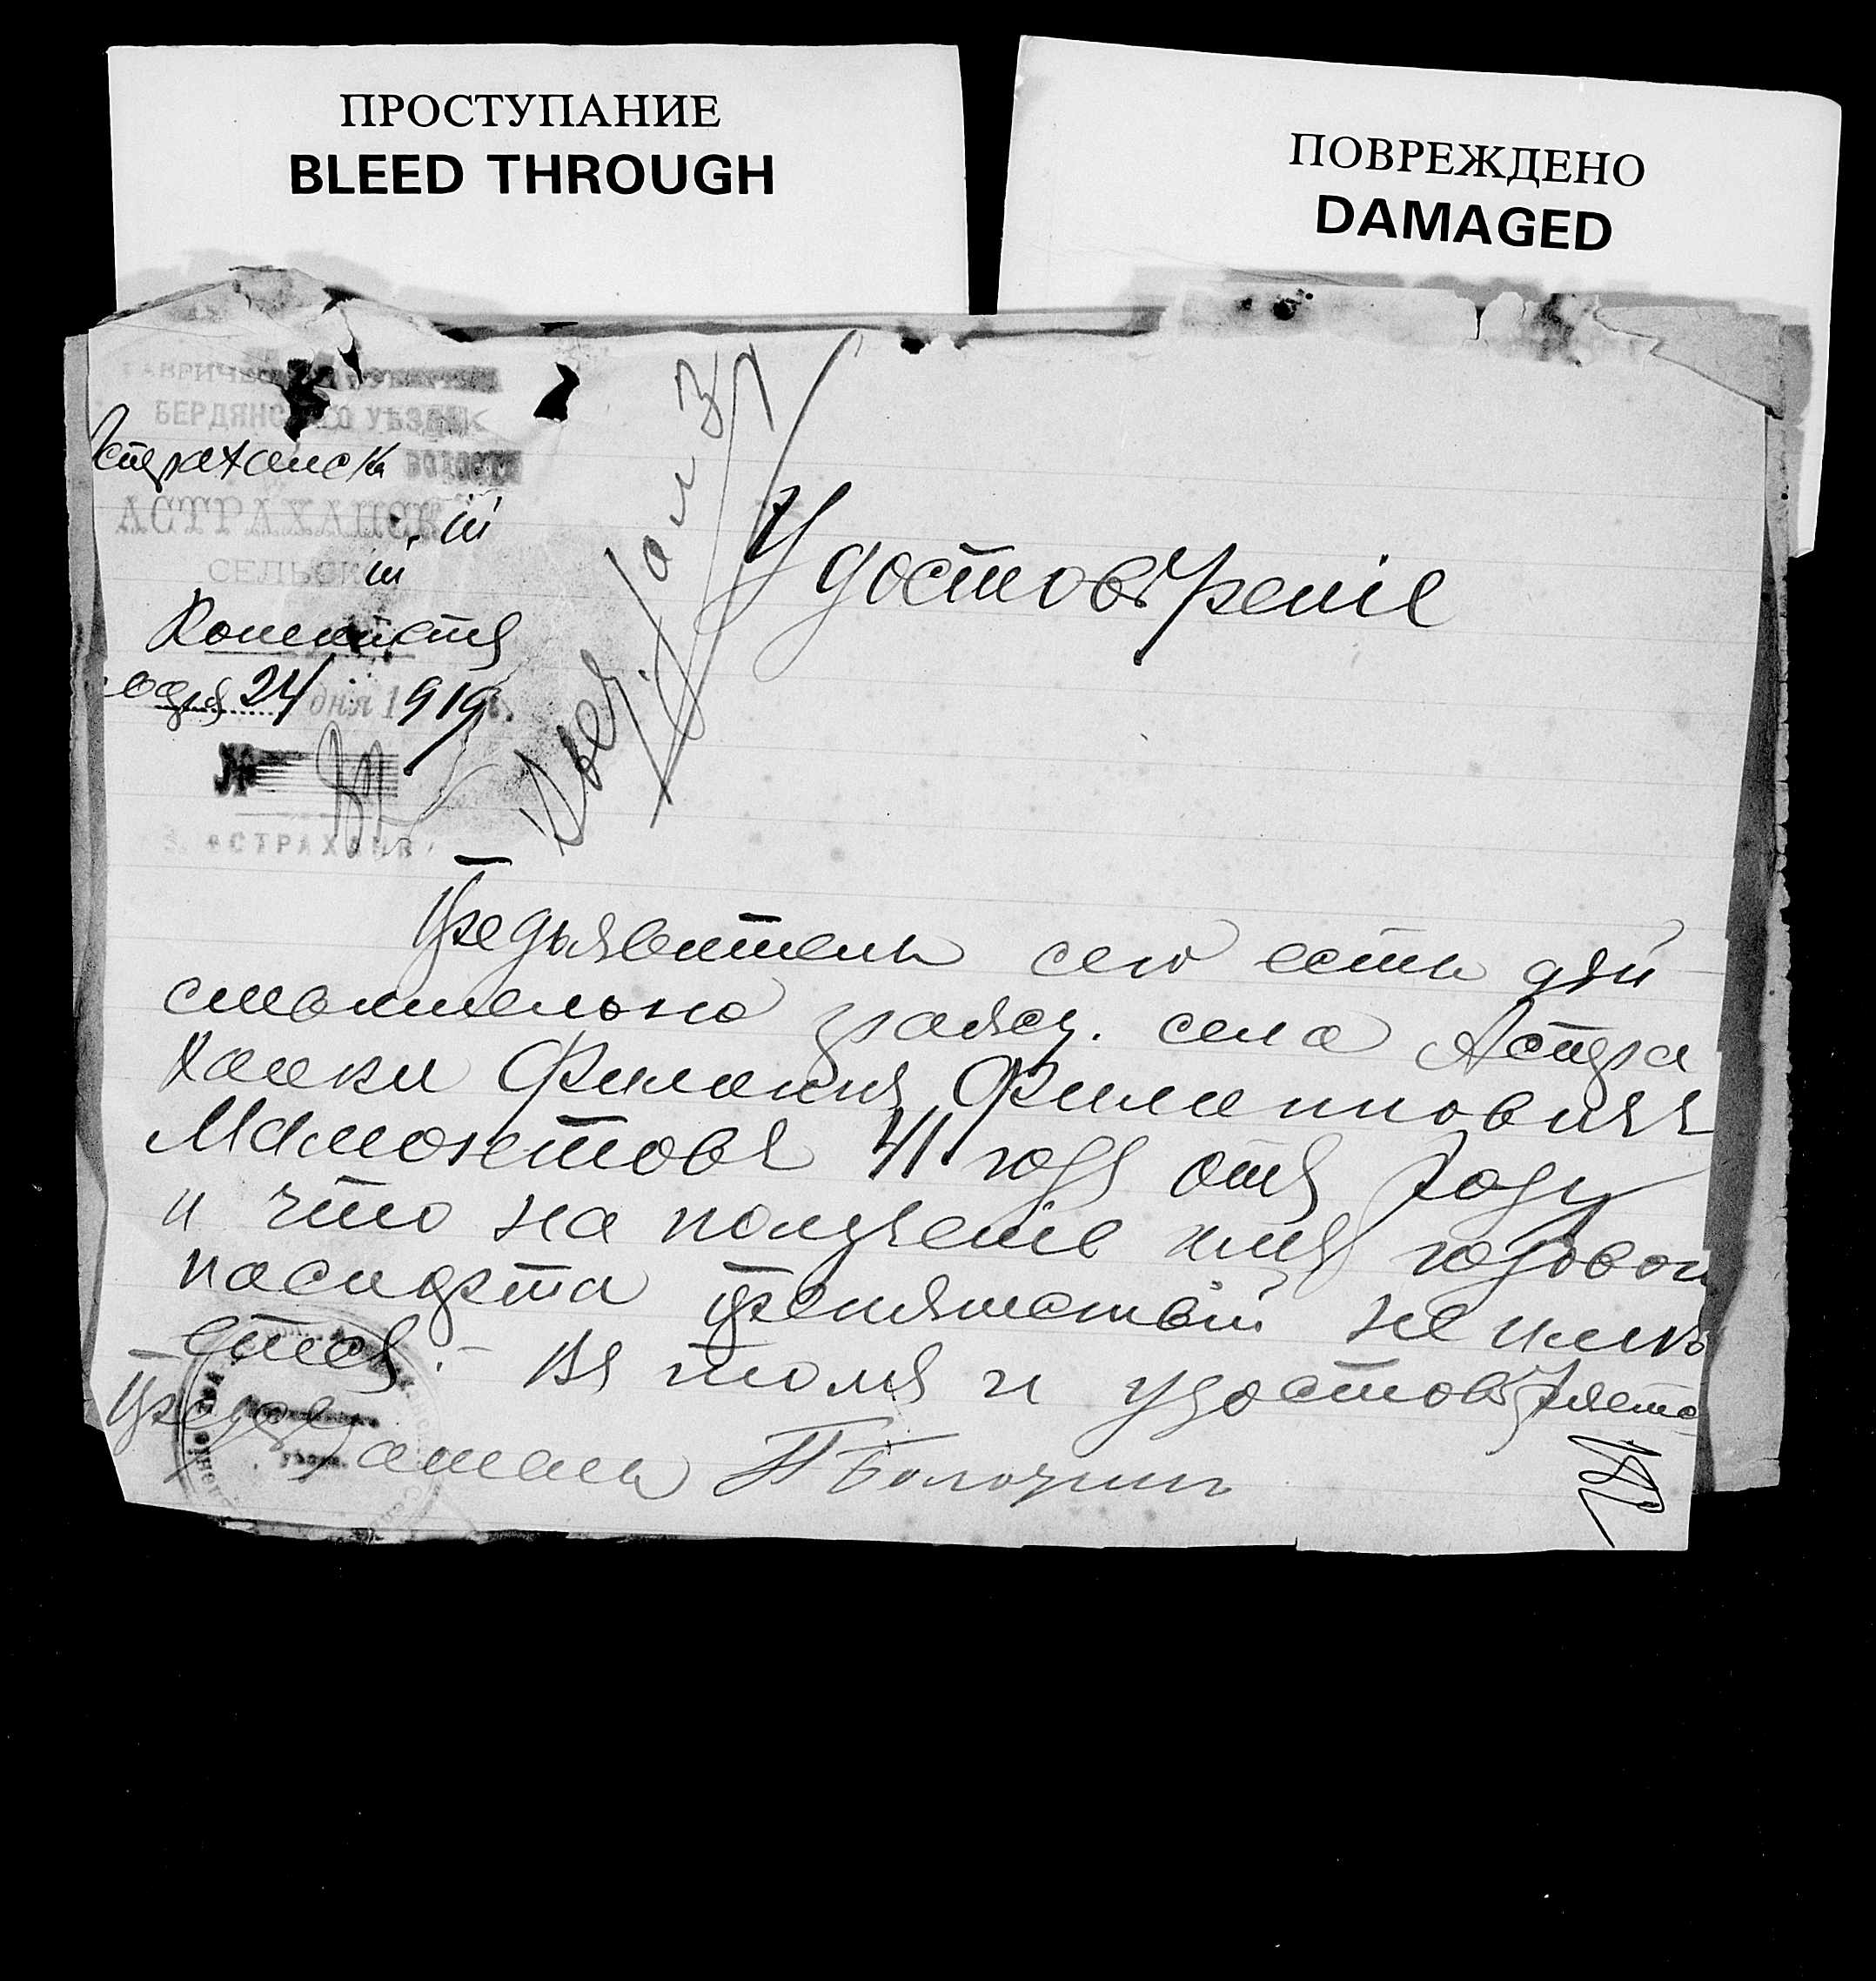 ПРОСТУПАНИЕ
BLEED THROUGH
ПОВРЕЖДЕНО
DAMAGED
БЕРДЯНСКАГО УѢЗДА
Астраханск
АСТРАХАНСК ій
СЕЛЬСК ій
Комитетъ
24 дня 1919 г.
№
С. АСТРАХАНКА
Удостовѣреніе
Предъявитель сего есть дѣй
ствительно гражд. села Астра
ханки Филиппъ Филипповичъ
Мамонтовъ 41 годъ отъ роду
и что на полученіе имъ годовои
паспорта препятствій не имѣ
ется. — въ томъ и удостовѣряется
Предсѣдатель П Болотин